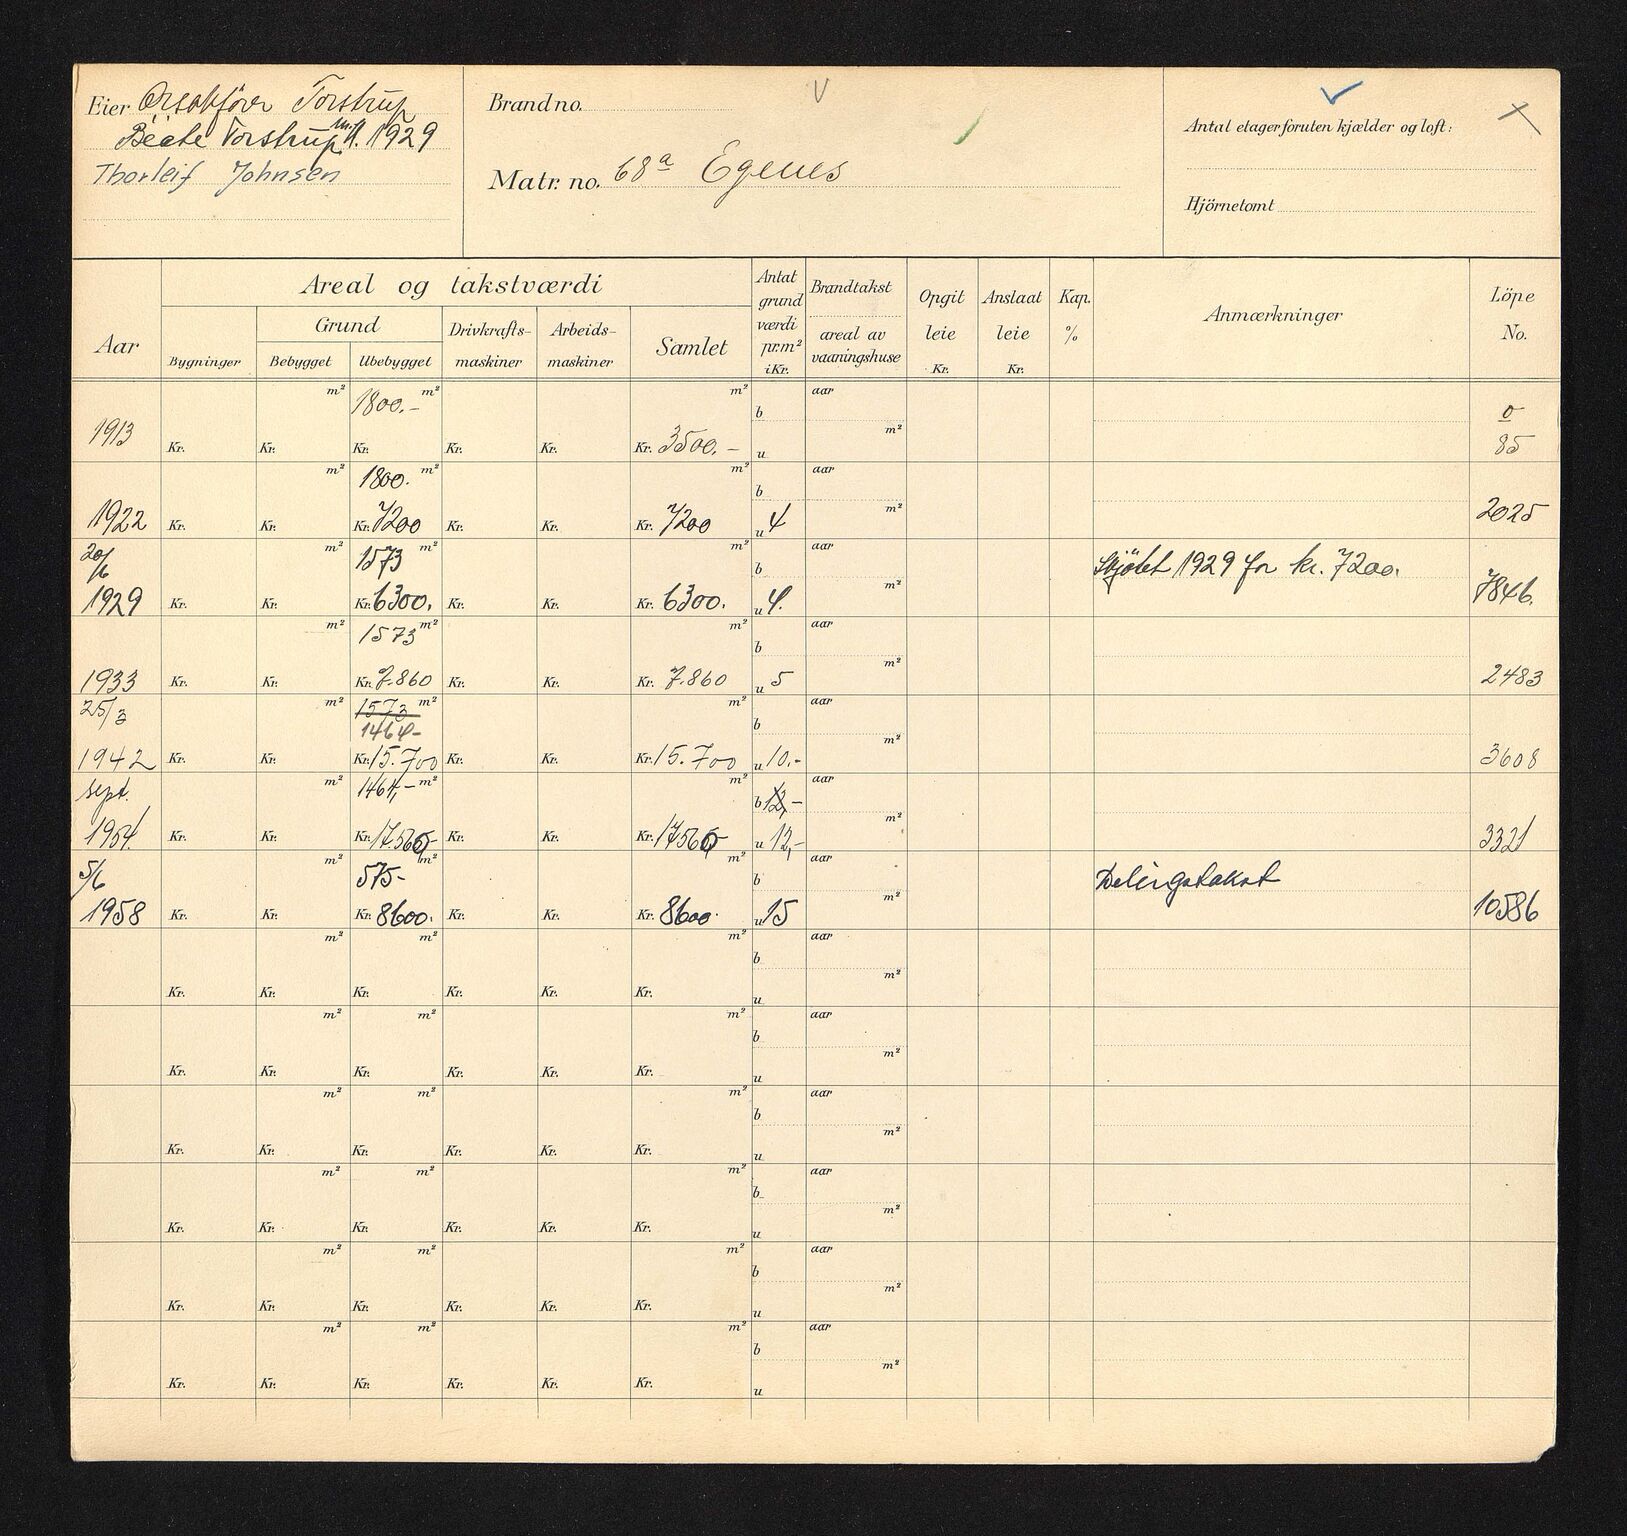 Eier Torstrup
Beate Torstrup 1929
Thorleif Johnsen
Brand no.
Matr. no. 68a Egenes
Antal etager foruten kjælder og loft:
Hjörnetomt
Aar
Areal og takstværdi
Bygninger
Grund
Bebygget
Ubebygget
Drivkrafts-
maskiner
Arbeids-
maskiner
Samlet
Antat
grund
værdi
pr. m²
i Kr.
Brandtakst
areal av
vaaningshuse
Opgit
leie
Kr.
Anslaat
leie
Kr.
Kap.
%
Anmærkninger
Löpe
No.
m² 1800.- m² m² b aar o
1913 Kr. Kr. Kr. Kr. Kr. Kr. 3500.- u m² 85
m² 1800. m² m² b aar
1922 Kr. Kr. Kr. 7200 Kr. Kr. Kr. 7200 u 4 m² 2025
20/6 m² 1573 m² m² b aar Skjötet 1929 for kr. 7200.
1929 Kr. Kr. Kr. 6300. Kr. Kr. Kr. 6300. u 4. m² 7846.
m² 1573 m² m² b aar
1933 Kr. Kr. Kr. 7.860 Kr. Kr. Kr. 7.860 u 5 m² 2483
25/3 m² 1573 m² m² b aar
1464-
1942 Kr. Kr. Kr. 15.700 Kr. Kr. Kr. 15.700 u 10.- m² 3608
Sept. m² 1464,- m² m² b 12,- aar
1954 Kr. Kr. Kr. 17.560,- Kr. Kr. Kr. 17560,- u 12,- m² 3321
5/6 m² 575- m² m² b aar Delingstakst
1958 Kr. Kr. Kr. 8600. Kr. Kr. Kr. 8600. u 15 m² 10586
m² m² m² b aar
Kr. Kr. Kr. Kr. Kr. Kr. u m²
m² m² m² b aar
Kr. Kr. Kr. Kr. Kr. Kr. u m²
m² m² m² b aar
Kr. Kr. Kr. Kr. Kr. Kr. u m²
m² m² m² b aar
Kr. Kr. Kr. Kr. Kr. Kr. u m²
m² m² m² b aar
Kr. Kr. Kr. Kr. Kr. Kr. u m²
m² m² m² b aar
Kr. Kr. Kr. Kr. Kr. Kr. u m²